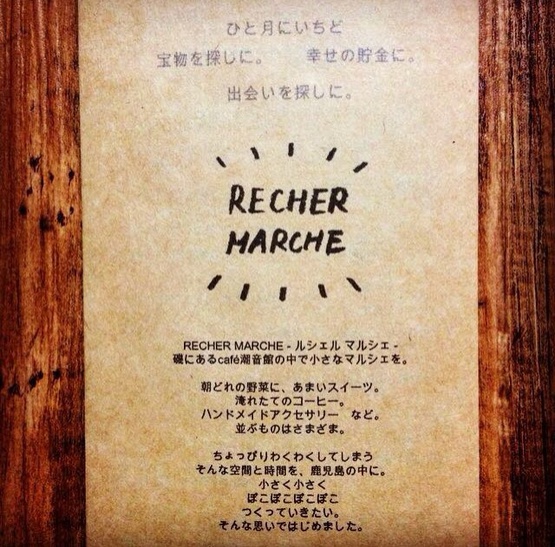 ひと月にいちど
宝物を探しに。 幸せの貯金に。
出会いを探しに。
RECHER
MARCHE
RECHER MARCHE - ルシェル マルシェ -
磯にあるcafé潮音館の中で小さなマルシェを。
朝どれの野菜に、あまいスイーツ。
淹れたてのコーヒー。
ハンドメイドアクセサリー など。
並ぶものはさまざま。
ちょっぴりわくわくしてしまう
そんな空間と時間を、鹿児島の中に。
小さく小さく
ぽこぽこぽこぽこ
つくっていきたい。
そんな思いではじめました。